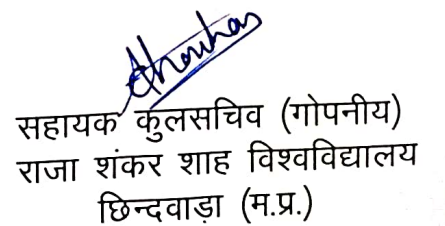 सहायक कुलसचिव (गोपनीय)
राजा शंकर शाह विश्वविद्यालय
छिन्दवाड़ा (म.प्र.)